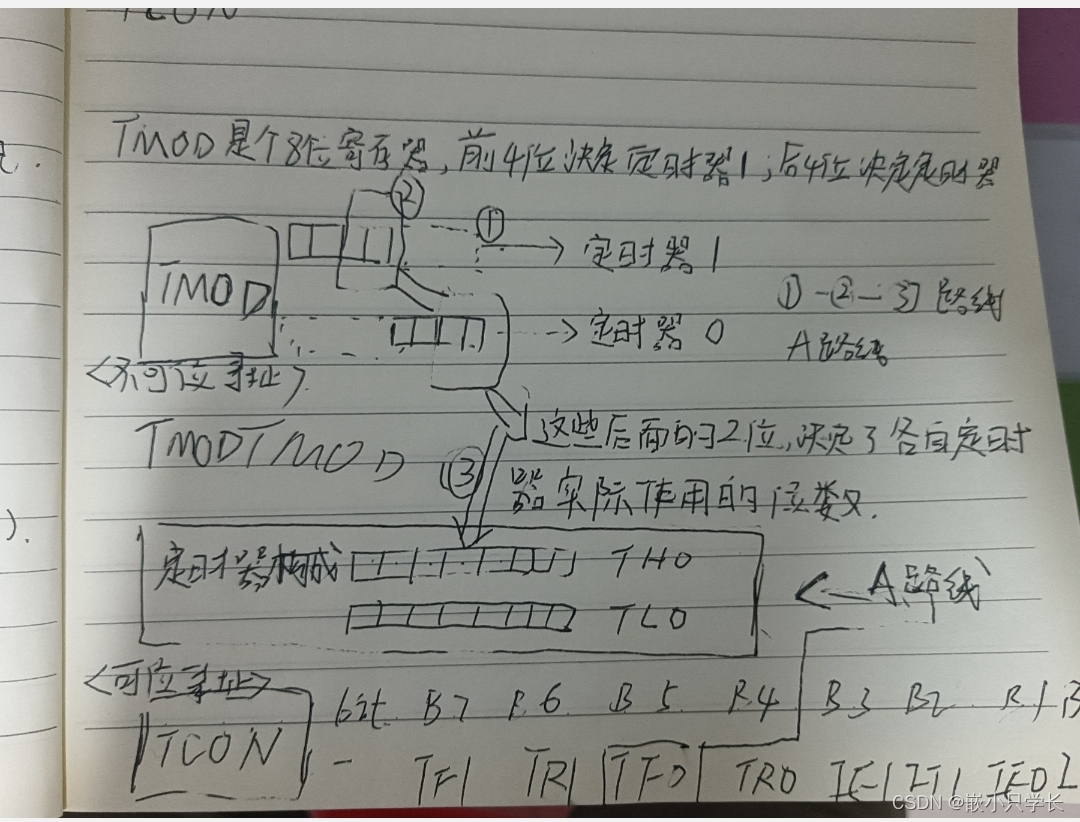 TCON
TMOD是个8位寄存器,前4位决定定时器1;后4位决定定时器
②
①
定时器1
TMOD
①-②-③路线
定时器0
A路线
<不可位寻址>
这些后面的2位,决定了各自定时
TMODTMOD
③
器实际使用的位数.
定时器构成
TH0
A路线
TL0
<可位寻址>
bit B7 B6 B5 B4 B3 B2 B1 B
TCON
- TF1 TR1 TF0 TR0 IE1 IT1 IE0 I
CSDN @嵌小只学长